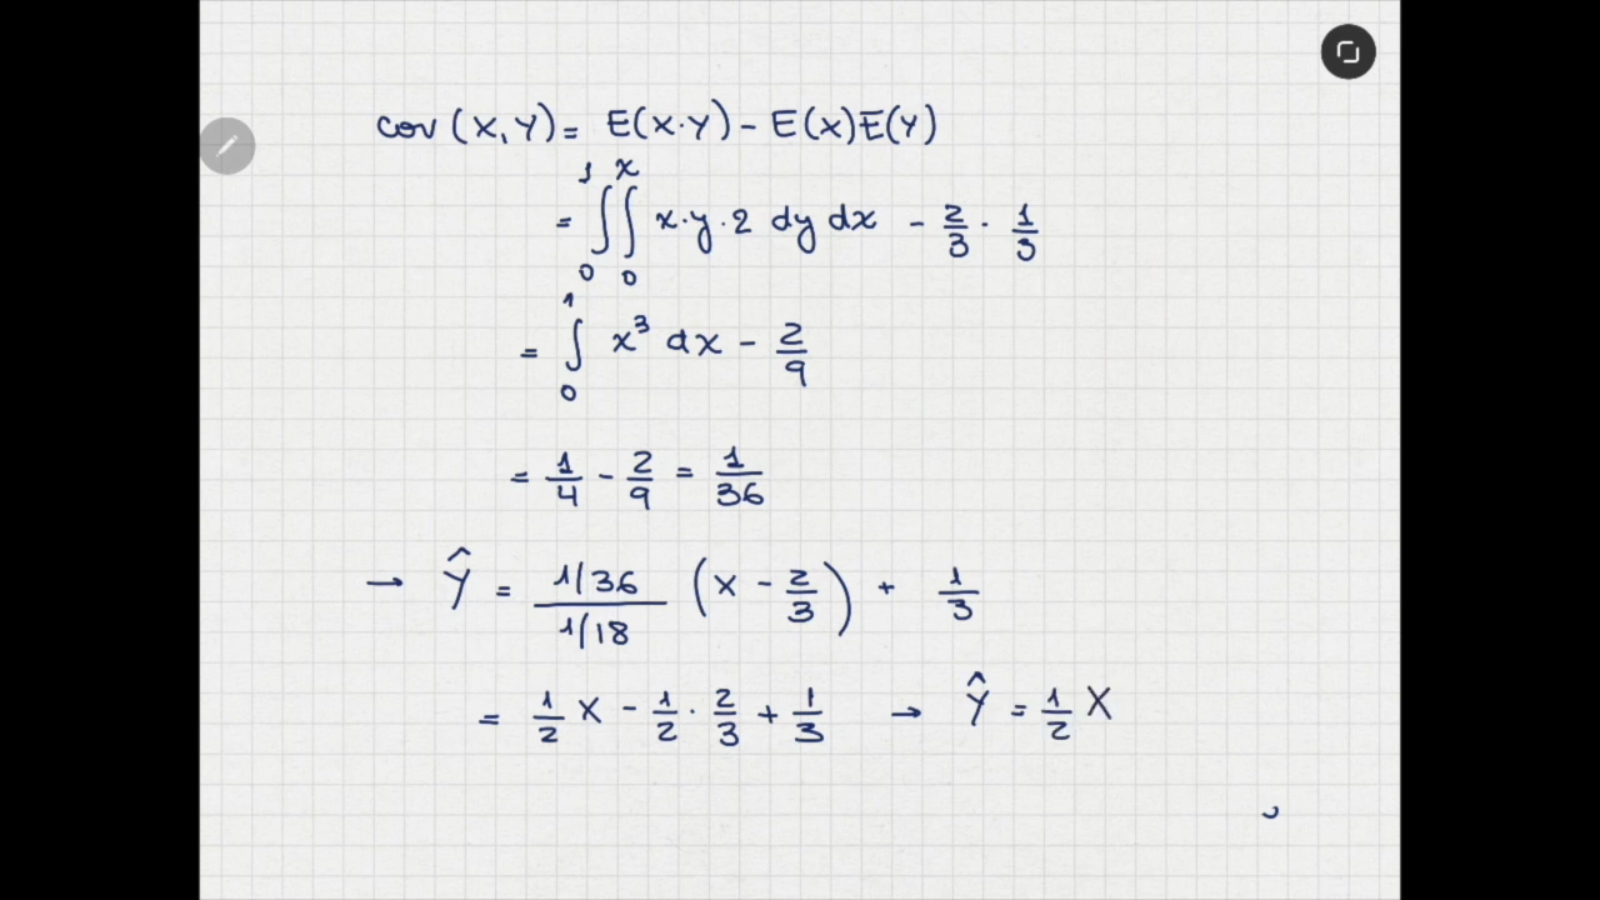 cov (X, Y) = E(X·Y) - E(X)E(Y)
= ∫₀¹ ∫₀ˣ x·y·2 dy dx - 2/3 · 1/3
= ∫₀¹ x³ dx - 2/9
= 1/4 - 2/9 = 1/36
→ Ŷ = (1/36)/(1/18) (X - 2/3) + 1/3
= 1/2 X - 1/2 · 2/3 + 1/3 → Ŷ = 1/2 X